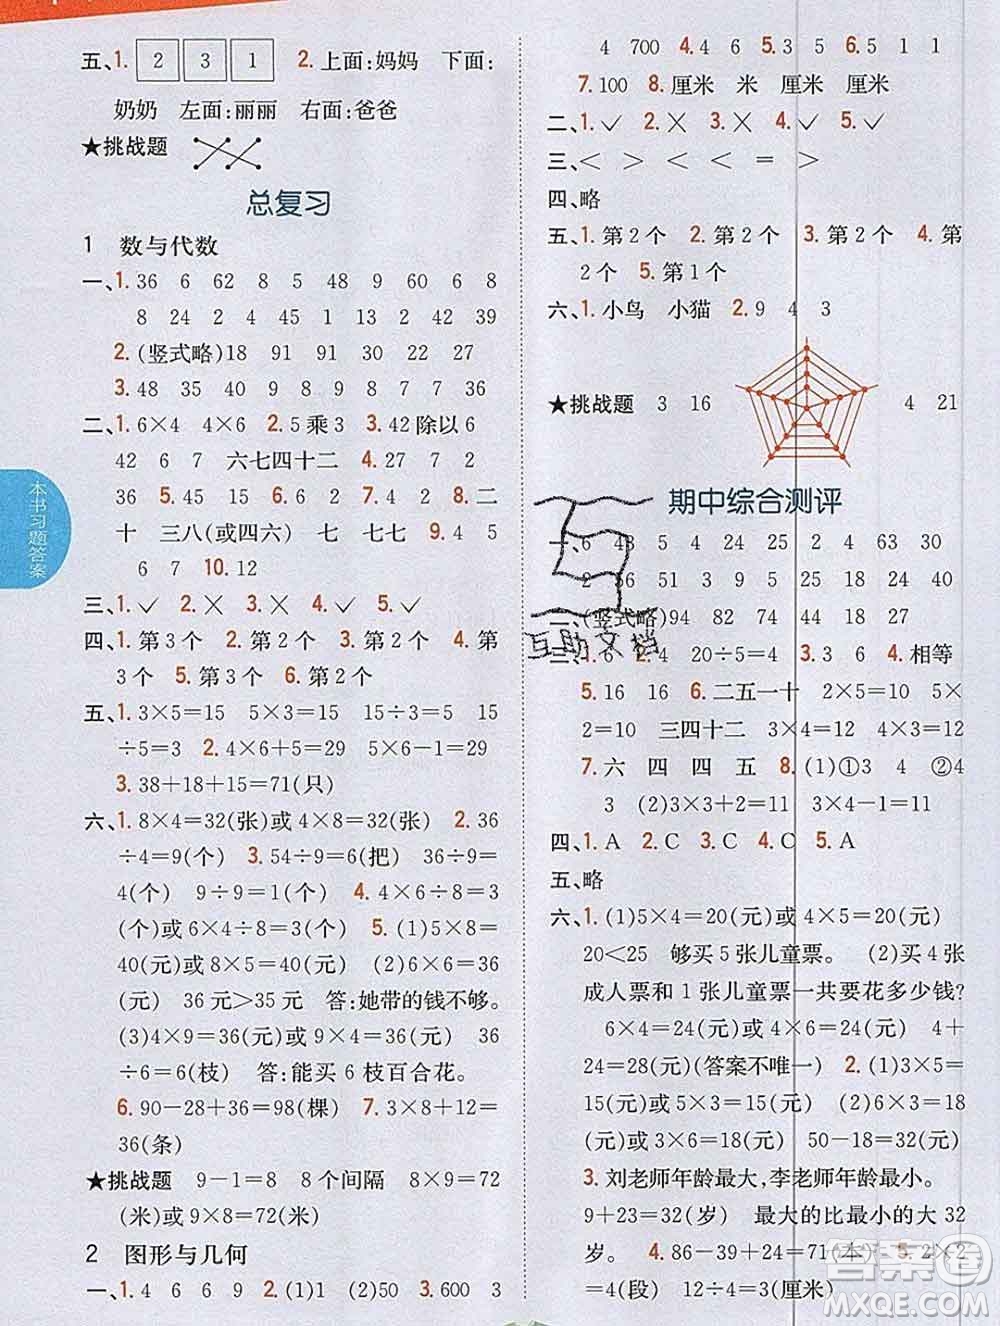 五、1. 2 3 1 2. 上面:妈妈 下面:
奶奶 左面:丽丽 右面:爸爸
★挑战题
总复习
1 数与代数
一、1. 36 6 62 8 5 48 9 60 6 8
8 24 2 4 54 6 32 2 42 39
2. (竖式略)18 91 91 32 22 27
3. 48 35 40 9 8 9 8 7 7 36
二、1. 6×4 4×6 2. 5 乘 3 3. 42 除以 6
42 6 7 六七四十二 4. 4 9 2
36 5. 45 15 6. 24 7. 6 8. 二
十 三八(或四六) 七 七七 9. 4 5
6 7 10. 12
三、1. ✓ 2. × 3. × 4. ✓ 5. ✓
四、1. 第 3 个 2. 第 1 个 3. 第 2 个 4. 第
3 个 5. 第 3 个 6. 第 2 个
五、1. 3×5=15 5×3=15 15÷3=5 15
÷5=3 2. 4×6+5=29 5×6-1=29
3. 38+18+15=71(只)
六、1. 8×4=32(张)或 4×8=32(张) 2. 36
÷4=9(个) 3. 54÷9=6(把) 36÷9=
4(个) 9÷9=1(个) 4. 4×6÷8=3
(个)或 6×4÷8=3(个) 5. (1)5×8=
40(元)或 8×5=40(元) (2)6×6=36
(元) 36元>35元 答:她带的钱不够。
(3)4×9=36(元)或 9×4=36(元) 36
÷6=6(枝) 答:能买 6 枝百合花。
6. 90-28+36=98(棵) 7. 3×8+12=
36(条)
★挑战题 9-1=8 8 个间隔 8×9=72
(米)或 9×8=72(米)
2 图形与几何
一、1. 4 6 6 9 2. (1)1 (2)50 3. 600 3
4 700 4. 4 6 5. 3 5 6. 5 1 1
7. 100 8. 厘米 米 厘米 厘米 厘米
二、1. ✓ 2. × 3. × 4. ✓ 5. ✓
三、< > < < = >
四、略
五、1. 第 2 个 2. 第 2 个 3. 第 2 个 4. 第
2 个 5. 第 1 个
六、1. 小鸟 小猫 2. 9 4 3
★挑战题 3 16 4 21
期中综合测评
一、6 48 5 4 24 25 2 4 63 30
2 56 51 3 9 5 25 18 24 40
二、(竖式略)94 82 74 44 18 20
三、1. 6 2. 4 20÷5=4 3. 3 6 4. 相等
5. 16 16 6. 二五一十 2×5=10 5×
2=10 三四十二 3×4=12 4×3=12
7. 六 四 四 五 8. (1)①3 4 ②4
3 (2)3×4-1=11 3×3+2=11
四、1. A 2. C 3. C 4. C 5. A
五、略
六、1. (1)5×4=20(元)或 4×5=20(元)
20<25 够买 5 张儿童票。 (2)买 4 张
成人票和 1 张儿童票一共要花多少钱?
6×4=24(元)或 4×6=24(元) 4+
24=28(元)(答案不唯一) 2. (1)3×5=
15(元)或 5×3=15(元) (2)6×3=18
(元)或 3×6=18(元) 50-18=32(元)
3. 刘老师年龄最大,李老师年龄最小。
9+23=32(岁) 最大的比最小的大 32
岁。 4. 86-39+24=71(本) 5. 2×2
=4(段) 12÷4=3(厘米)
本书习题答案
互助文档
答案圈
MXQE.COM